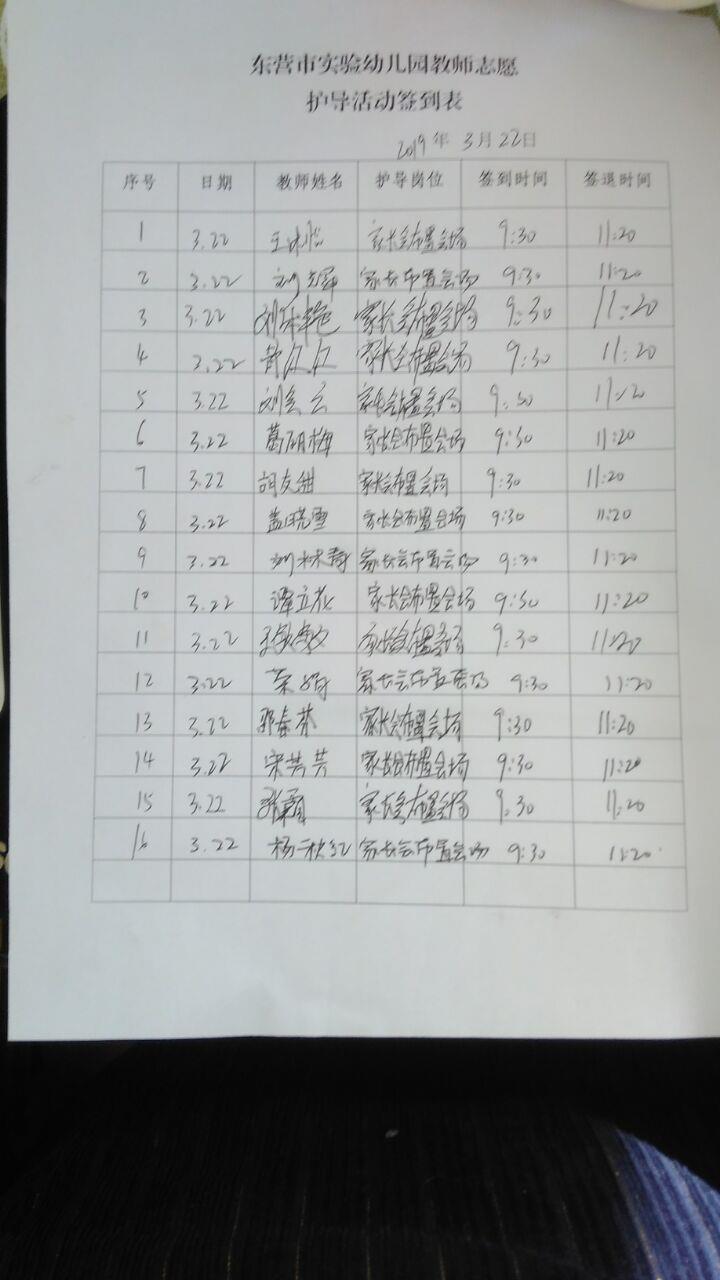 东营市实验幼儿园教师志愿
护导活动签到表
2019年 3月22日
序号 日期 教师姓名 护导岗位 签到时间 签退时间
1 3.22 家长会布置会场 9:30 11:20
2 3.22 家长布置会场 9:30 11:20
3 3.22 家长会布置会场 9:30 11:20
4 3.22 家长会布置会场 9:30 11:20
5 3.22 刘会云 家长会布置会场 9:30 11:20
6 3.22 葛丽梅 家长会布置会场 9:30 11:20
7 3.22 胡友继 家长会布置会场 9:30 11:20
8 3.22 盖晓雪 家长会布置会场 9:30 11:20
9 3.22 家长会布置会场 9:30 11:20
10 3.22 谭立花 家长会布置会场 9:30 11:20
11 3.22 家长会布置会场 9:30 11:20
12 3.22 家长会布置会场 9:30 11:20
13 3.22 郭春芬 家长会布置会场 9:30 11:20
14 3.22 宋芸芸 家长会布置会场 9:30 11:20
15 3.22 家长会布置会场 9:30 11:20
16 3.22 杨秋红 家长会布置会场 9:30 11:20